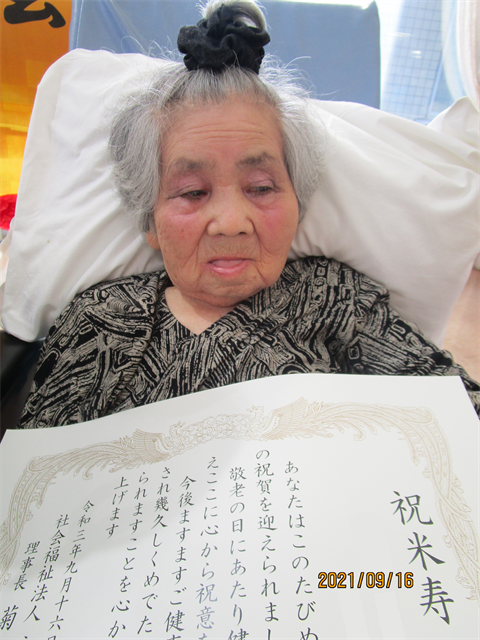 祝米寿
あなたはこのたびめ
の祝賀を迎えられまし
敬老の日にあたり健
えここに心から祝意を
今後ますますご健
され幾久しくめでた
られますことを心か
上げます
令和三年九月十六日
社会福祉法人
理事長 菊
2021/09/16